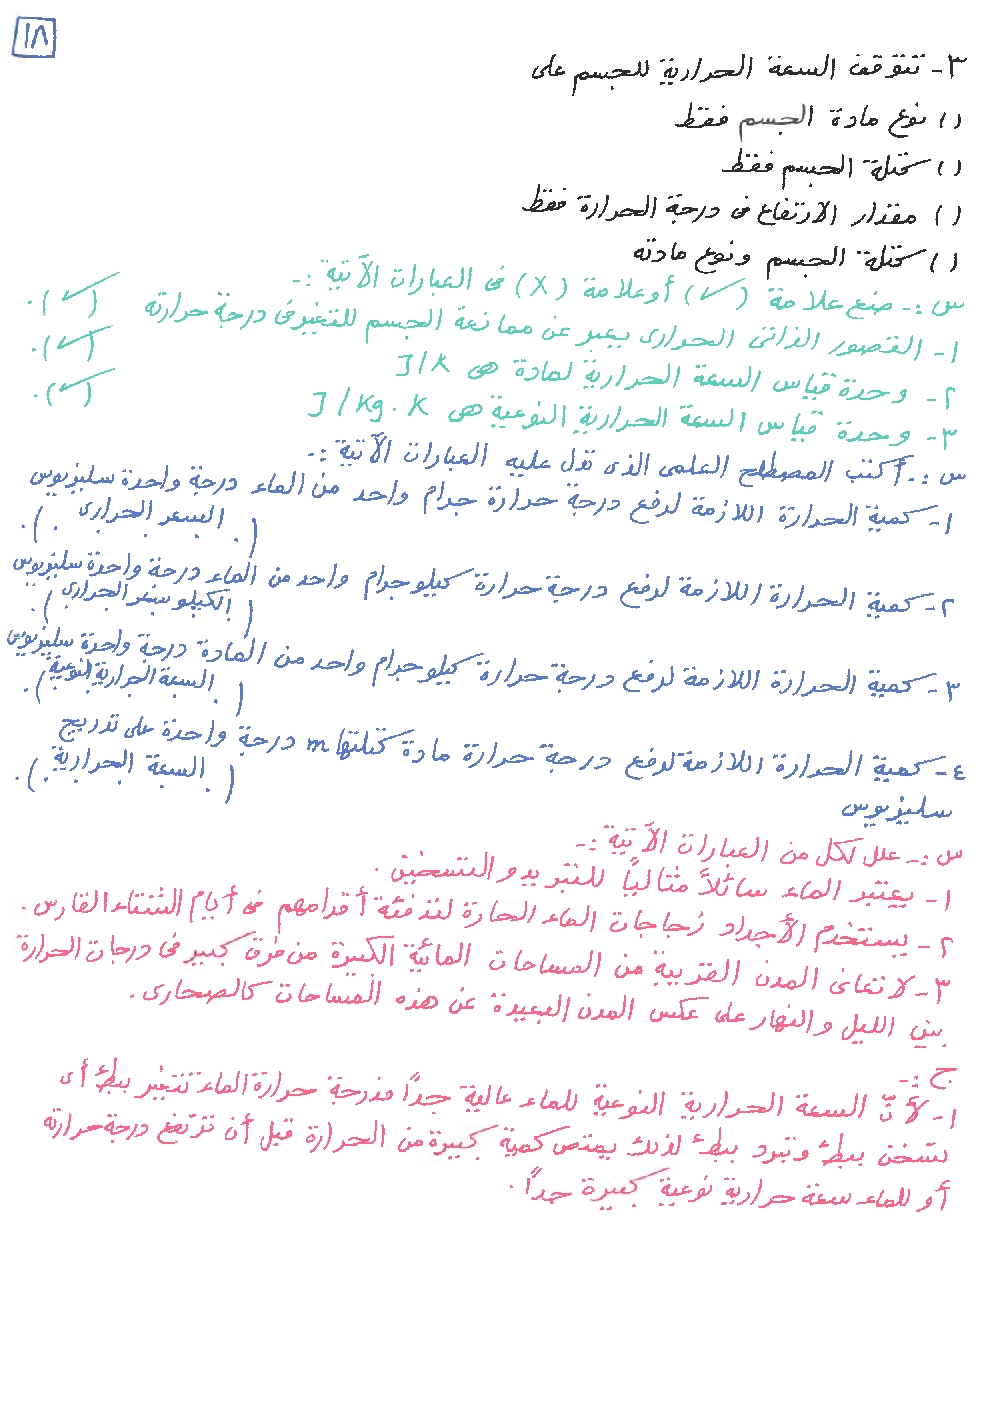 ١٨
٣- تتوقف السعة الحرارية للجسم على
( ) نوع مادة الجسم فقط
( ) كتلة الجسم فقط
( ) مقدار الارتفاع فى درجة الحرارة فقط
( ) كتلة الجسم ونوع مادته
س :- ضع علامة (✓) أو علامة (X) فى العبارات الآتية :-
١- القصور الذاتى الحرارى يعبر عن ممانعة الجسم للتغير فى درجة حرارته (✓).
٢- وحدة قياس السعة الحرارية لمادة هى J/K (✓).
٣- وحدة قياس السعة الحرارية النوعية هى J/Kg.K (✓).
س :- أكتب المصطلح العلمى الذى تدل عليه العبارات الآتية :-
١- كمية الحرارة اللازمة لرفع درجة حرارة جرام واحد من الماء درجة واحدة سليزيوس
( السعر الحرارى ).
٢- كمية الحرارة اللازمة لرفع درجة حرارة كيلو جرام واحد من الماء درجة واحدة سليزيوس
( الكيلو سعر الحرارى ).
٣- كمية الحرارة اللازمة لرفع درجة حرارة كيلو جرام واحد من المادة درجة واحدة سليزيوس
( السعة الحرارية النوعية ).
٤- كمية الحرارة اللازمة لرفع درجة حرارة مادة كتلتها m درجة واحدة على تدريج
( السعة الحرارية ).
سليزيوس
س :- علل لكل من العبارات الآتية :-
١- يعتبر الماء سائلاً مثالياً للتبريد و التسخين .
٢- يستخدم الأجداد زجاجات الماء الحارة لتدفئة أقدامهم فى أيام الشتاء القارس .
٣- لا تعانى المدن القريبة من المساحات المائية الكبيرة من فرق كبير فى درجات الحرارة
بين الليل والنهار على عكس المدن البعيدة عن هذه المساحات كالصحارى .
ج :-
١- لأنّ السعة الحرارية النوعية للماء عالية جداً فدرجة حرارة الماء تتغير ببطئ أى
تسخن ببطئ وتبرد ببطئ لذلك يمتص كمية كبيرة من الحرارة قبل أن ترتفع درجة حرارته
أو للماء سعة حرارية نوعية كبيرة جداً .